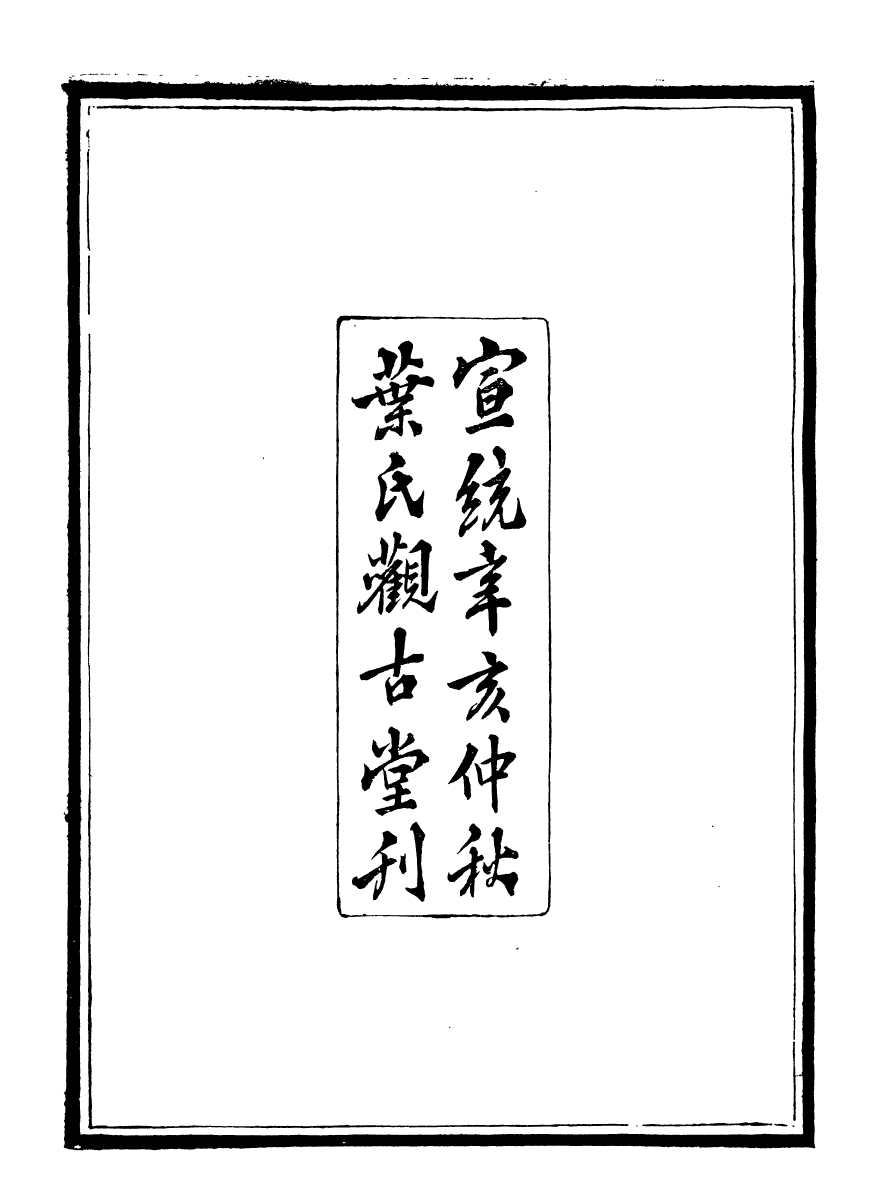 宣統辛亥仲秋
葉氏觀古堂刊